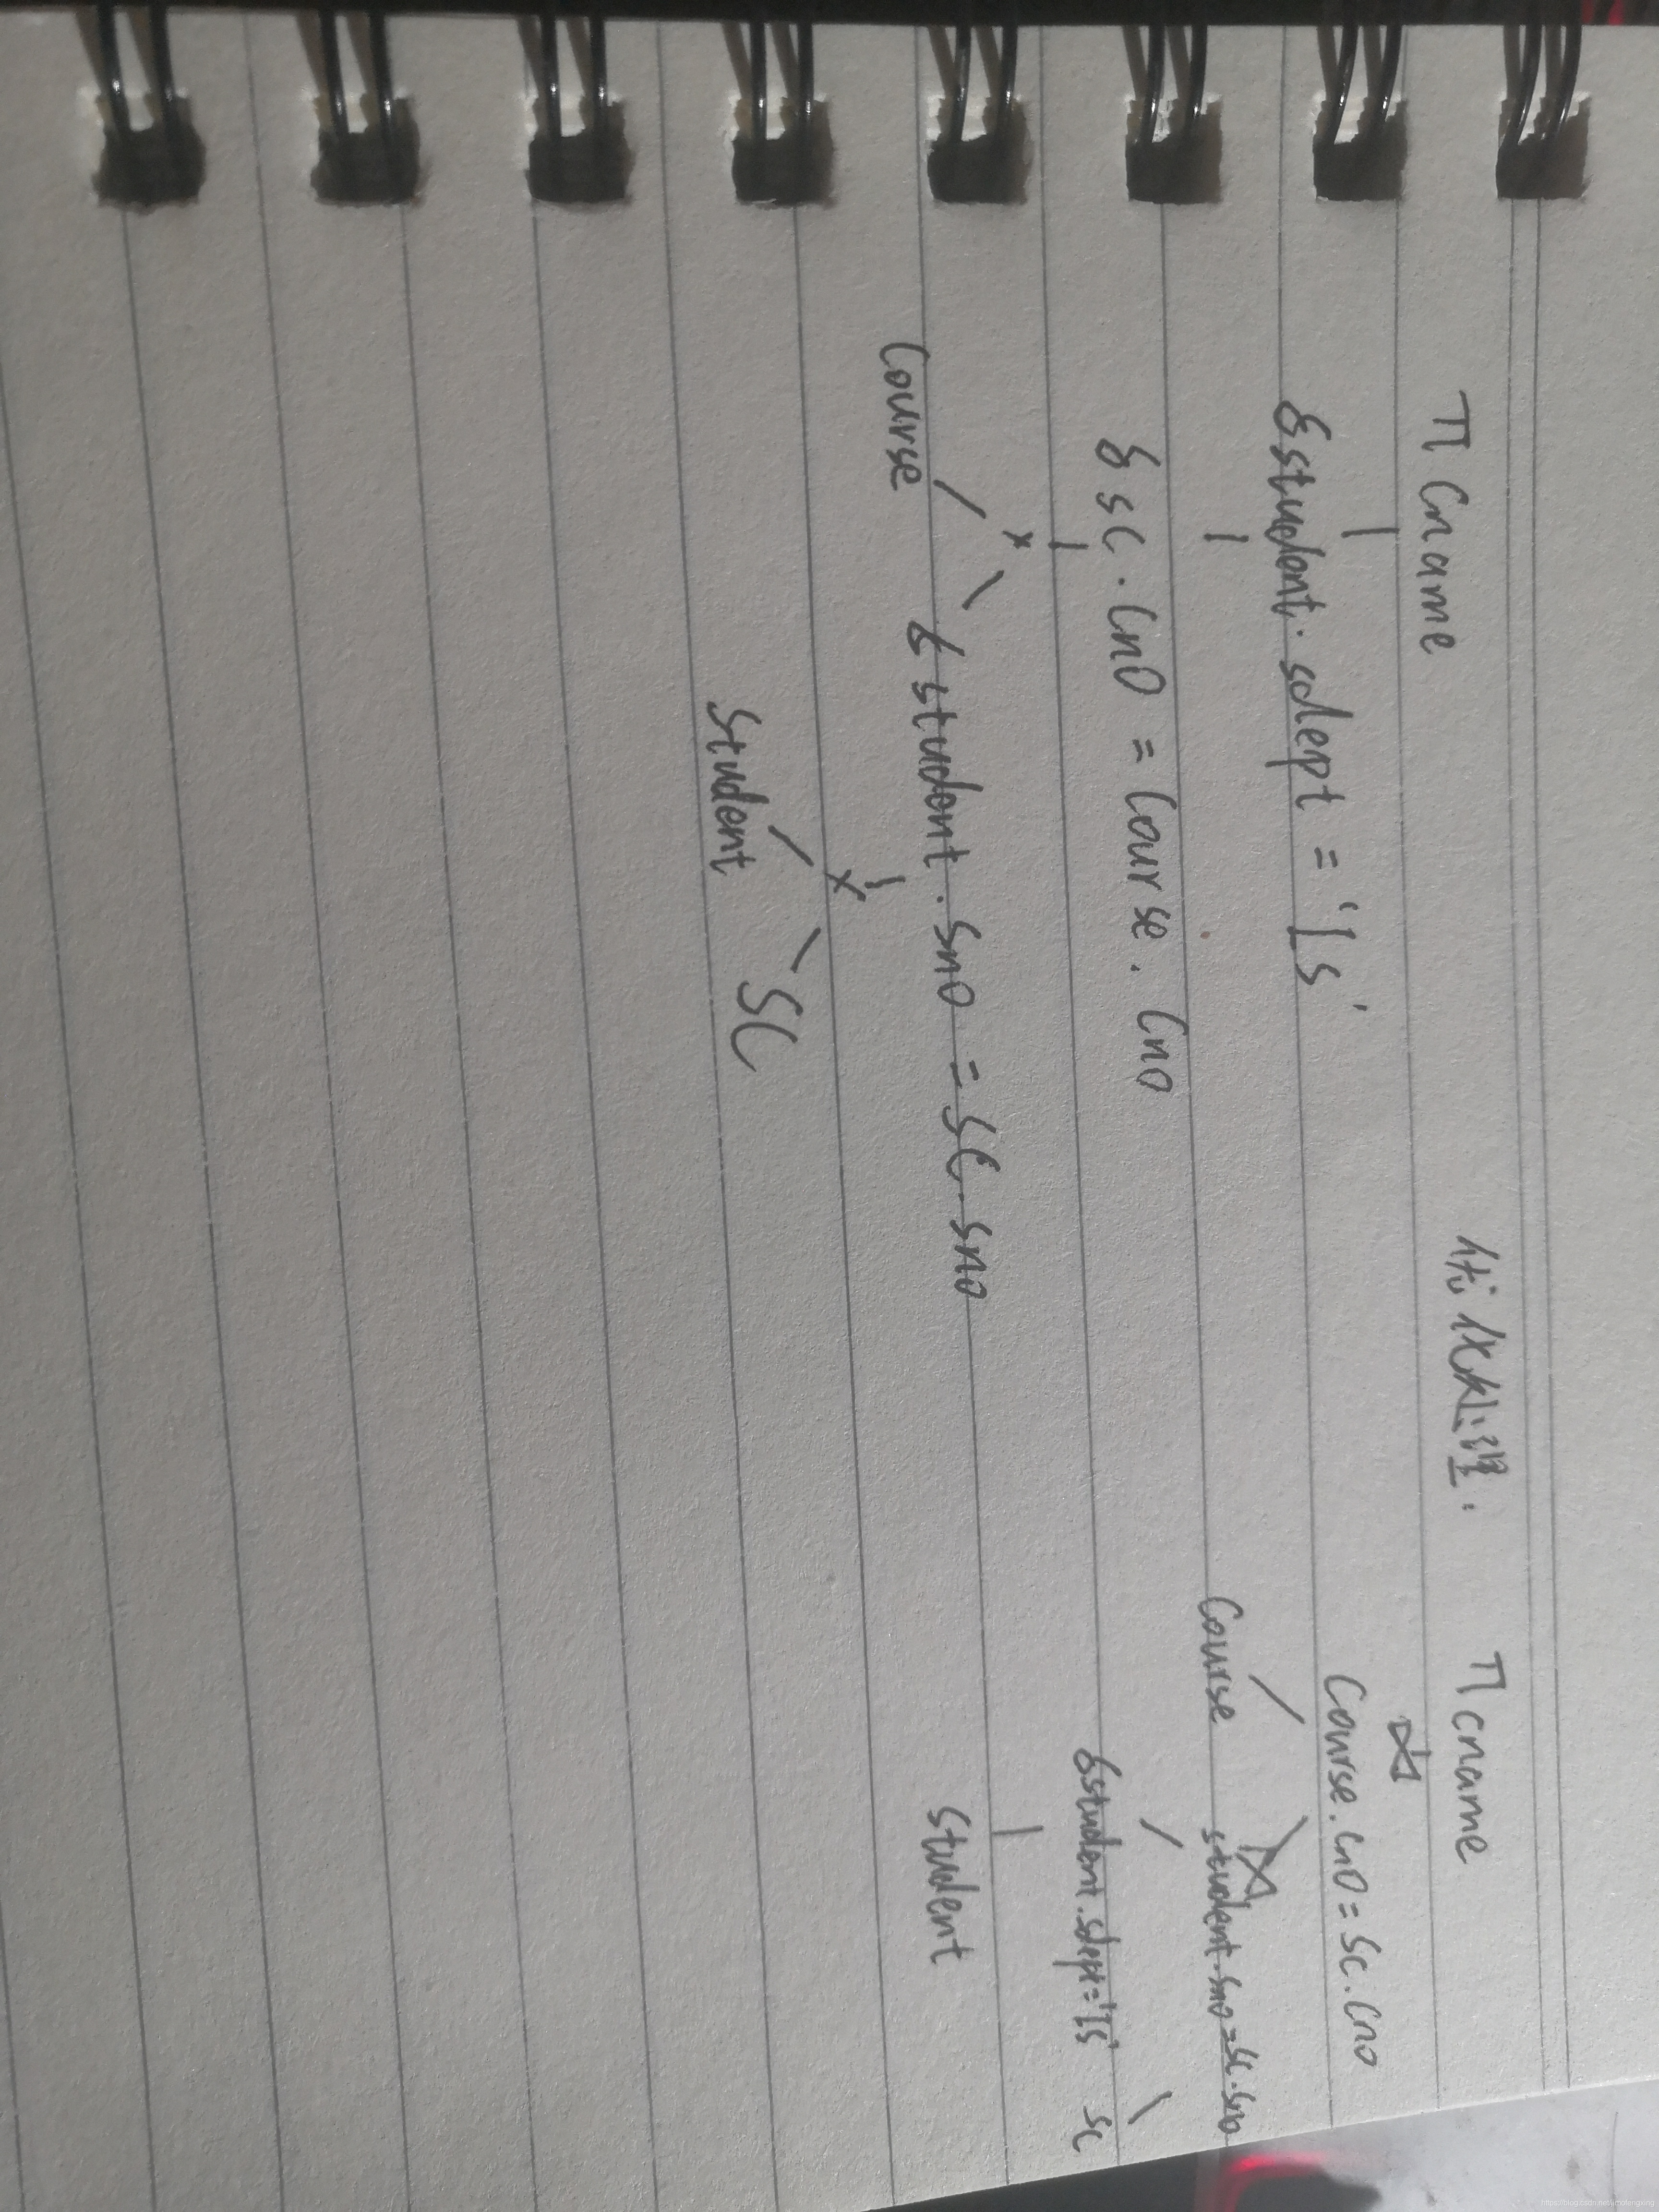 π Cname
优化处理:
π cname
σ student.sdept = 'IS'
⋈
Course.cno = SC.Cno
σ SC.Cno = Course.Cno
Course
⋈
student.sno = SC.sno
×
Course
σ student.Sno = SC.sno
σ student.sdept = 'IS'
SC
×
Student
Student
SC